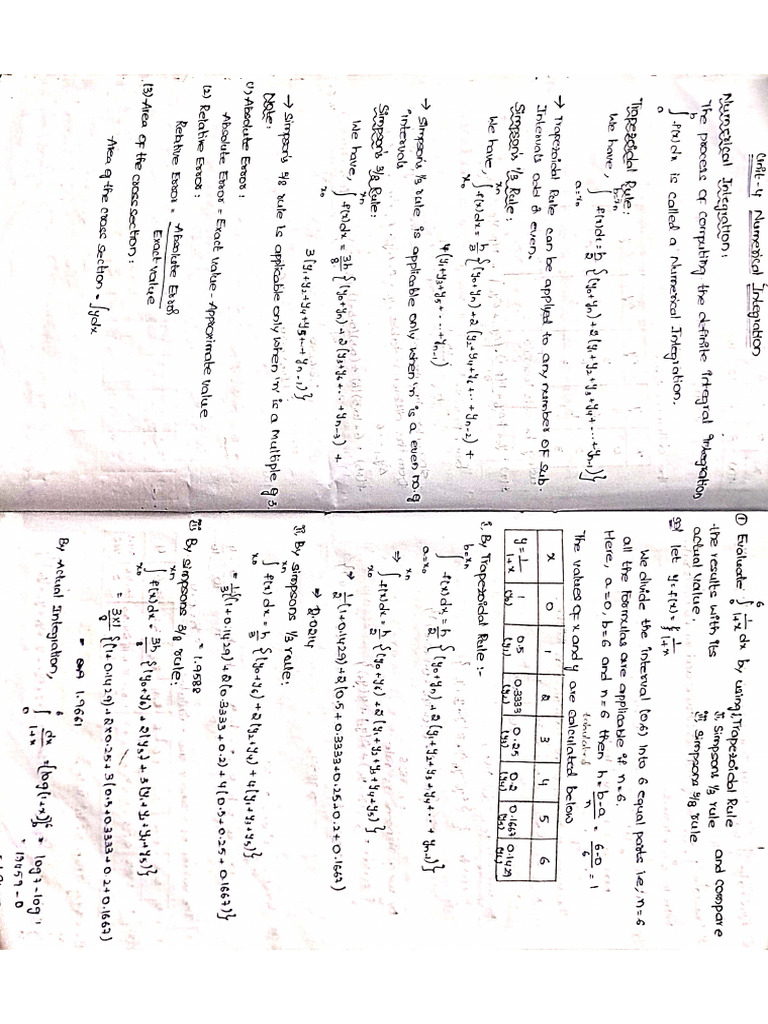 Unit-4 Numerical Integration
Numerical Integration:
The process of computing the definite integral integration
∫ₐᵇ f(x) dx is called a Numerical Integration.
Trapezoidal Rule:
We have, ∫_{a=x₀}^{b=xₙ} f(x)dx = h/2 {(y₀+yₙ)+2(y₁+y₂+y₃+y₄+...+yₙ₋₁)}
→ Trapezoidal Rule can be applied to any number OF sub.
Intervals odd & even.
Simpson's 1/3 Rule:
We have, ∫_{x₀}^{xₙ} f(x)dx = h/3 {(y₀+yₙ)+2(y₂+y₄+y₆+...+yₙ₋₂)+
4(y₁+y₃+y₅+...+yₙ₋₁)
→ Simpson's 1/3 rule is applicable only when 'n' is a even no of
intervals
Simpson's 3/8 Rule:
We have, ∫_{x₀}^{xₙ} f(x)dx = 3h/8 {(y₀+yₙ)+2(y₃+y₆+...+yₙ₋₃)+
3(y₁+y₂+y₄+y₅+..+yₙ₋₁)}
→ Simpson's 3/8 rule is applicable only when 'n' is a multiple of 3
Note:
(1) Absolute Error:
Absolute Error = Exact value - Approximate value
(2) Relative Error:
Relative Error = Absolute Error / Exact value
(3) Area of the cross section:
Area of the cross section = ∫ydx
1
① Evaluate ∫₀⁶ 1/(1+x) dx by using i, Trapezoidal Rule
ii, Simpsons 1/3 rule and compare
iii, Simpsons 3/8 rule
the results with its
actual value.
sol let y=f(x)= { 1/(1+x)
We divide the interval (0,6) into 6 equal parts i.e; n=6
all the formulas are applicable if n=6.
Here, a=0, b=6 and n=6 then h = (b-a)/n = (6-0)/6 = 1
The values of x and y are calculated below
x 0 1 2 3 4 5 6
y = 1/(1+x) 1 (y₀) 0.5 (y₁) 0.3333 (y₂) 0.25 (y₃) 0.2 (y₄) 0.1667 (y₅) 0.1429 (y₆)
i, By Trapezoidal Rule :-
∫_{a=x₀}^{b=xₙ} f(x)dx = h/2 {(y₀+yₙ)+2(y₁+y₂+y₃+y₄+...+yₙ₋₁)}
⇒ ∫_{x₀}^{xₙ} f(x)dx = h/2 {(y₀+y₆)+2(y₁+y₂+y₃+y₄+y₅)}
⇒ 1/2 (1+0.1429)+2(0.5+0.3333+0.25+0.2+0.1667)
⇒ 2.0214
ii, By simpsons 1/3 rule:
∫_{x₀}^{xₙ} f(x)dx = h/3 {(y₀+y₆)+2(y₂+y₄)+4(y₁+y₃+y₅)}
= 1/3 {(1+0.1429)+2(0.3333+0.2)+4(0.5+0.25+0.1667)}
= 1.9588
iii By simpsons 3/8 rule:
∫_{x₀}^{xₙ} f(x)dx = 3h/8 {(y₀+y₆)+2(y₃)+3(y₁+y₂+y₄+y₅)}
= 3x1/8 {(1+0.1429)+2x0.25+3(0.5+0.3333+0.2+0.1667)
= 1.9661
By Actual Integration,
∫₀⁶ dx/(1+x) = [log(1+x)]₀⁶ = log7-log1
= 1.9459-0